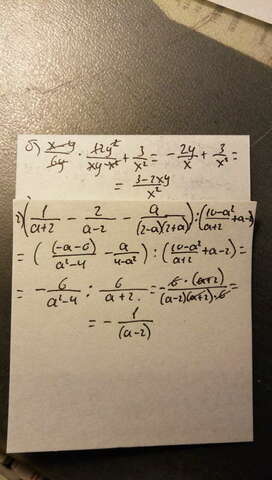 б) (x-y)/6y · 12y²/(xy-x²) + 3/x² = -2y/x + 3/x² =
= (3-2xy)/x²
2) (1/(a+2) - 2/(a-2) - a/((2-a)(2+a))) : ((10-a²)/(a+2) + a-2)
= ((-a-6)/(a²-4) - a/(4-a²)) : ((10-a²)/(a+2) + a-2) =
= -6/(a²-4) : 6/(a+2) = -6·(a+2)/((a-2)(a+2)·6) =
= -1/(a-2)